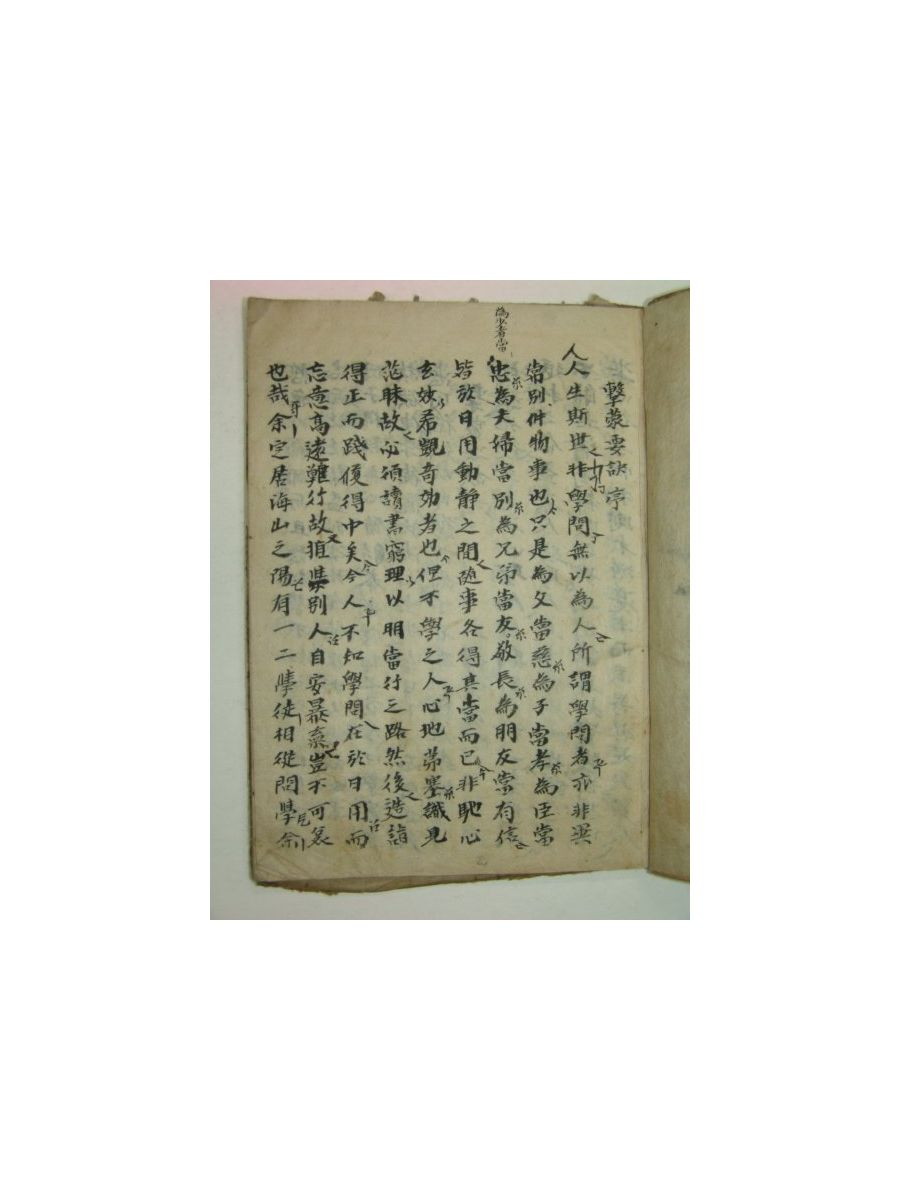 擊蒙要訣序
人生斯世非學問無以為人所謂學問者亦非異
常別件物事也只是為父當慈為子當孝為臣當
忠為夫婦當別為兄弟當友敬長為朋友當有信
為少者當
皆於日用動靜之間隨事各得其當而已非馳心
玄妙希覬奇効者也但不學之人心地茅塞識見
茫昧故必須讀書窮理以明當行之路然後造詣
得正而踐履得中矣今人不知學問在於日用而
忘意高遠難行故推與別人自安暴棄豈不可哀
也哉余定居海山之陽有一二學徒相從問學余